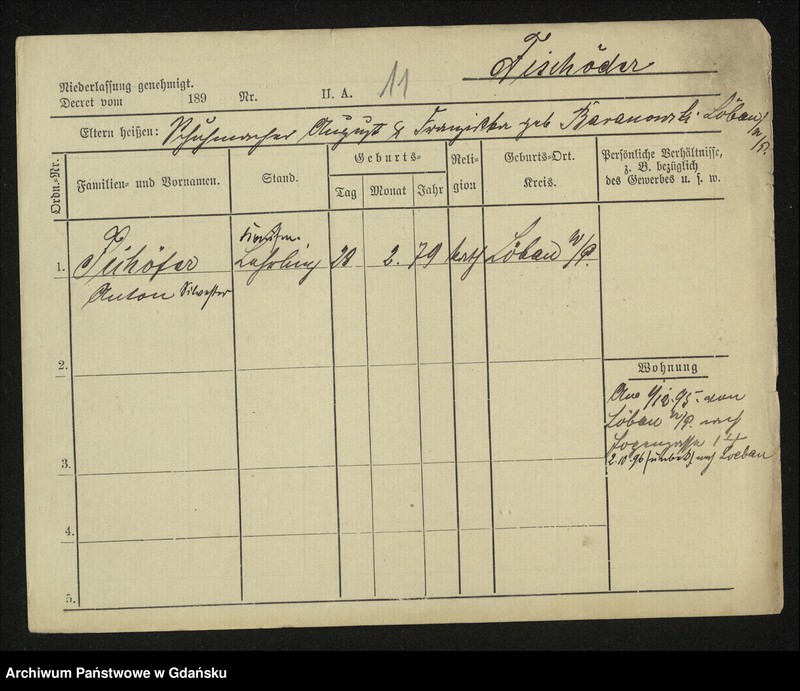 Niederlassung genehmigt.
Decret vom 189 Nr. II. A. 11
Tischöder
Eltern heißen: Schuhmacher August & Franziska geb Baranowski. Löbau
w/P.
Ordn.-Nr.
Familien- und Vornamen.
Stand.
Geburts-
Tag Monat Jahr
Religion
Geburts-Ort.
Kreis.
Persönliche Verhältnisse,
z. B. bezüglich
des Gewerbes u. s. w.
1. Lehrling 2. 79 kath Löbau W/P.
Anton Silvester
2.
Wohnung
9/12.95. von
Löbau W/P. nach
3. 2.10.96 nach Loebau
4.
5.
Archiwum Państwowe w Gdańsku